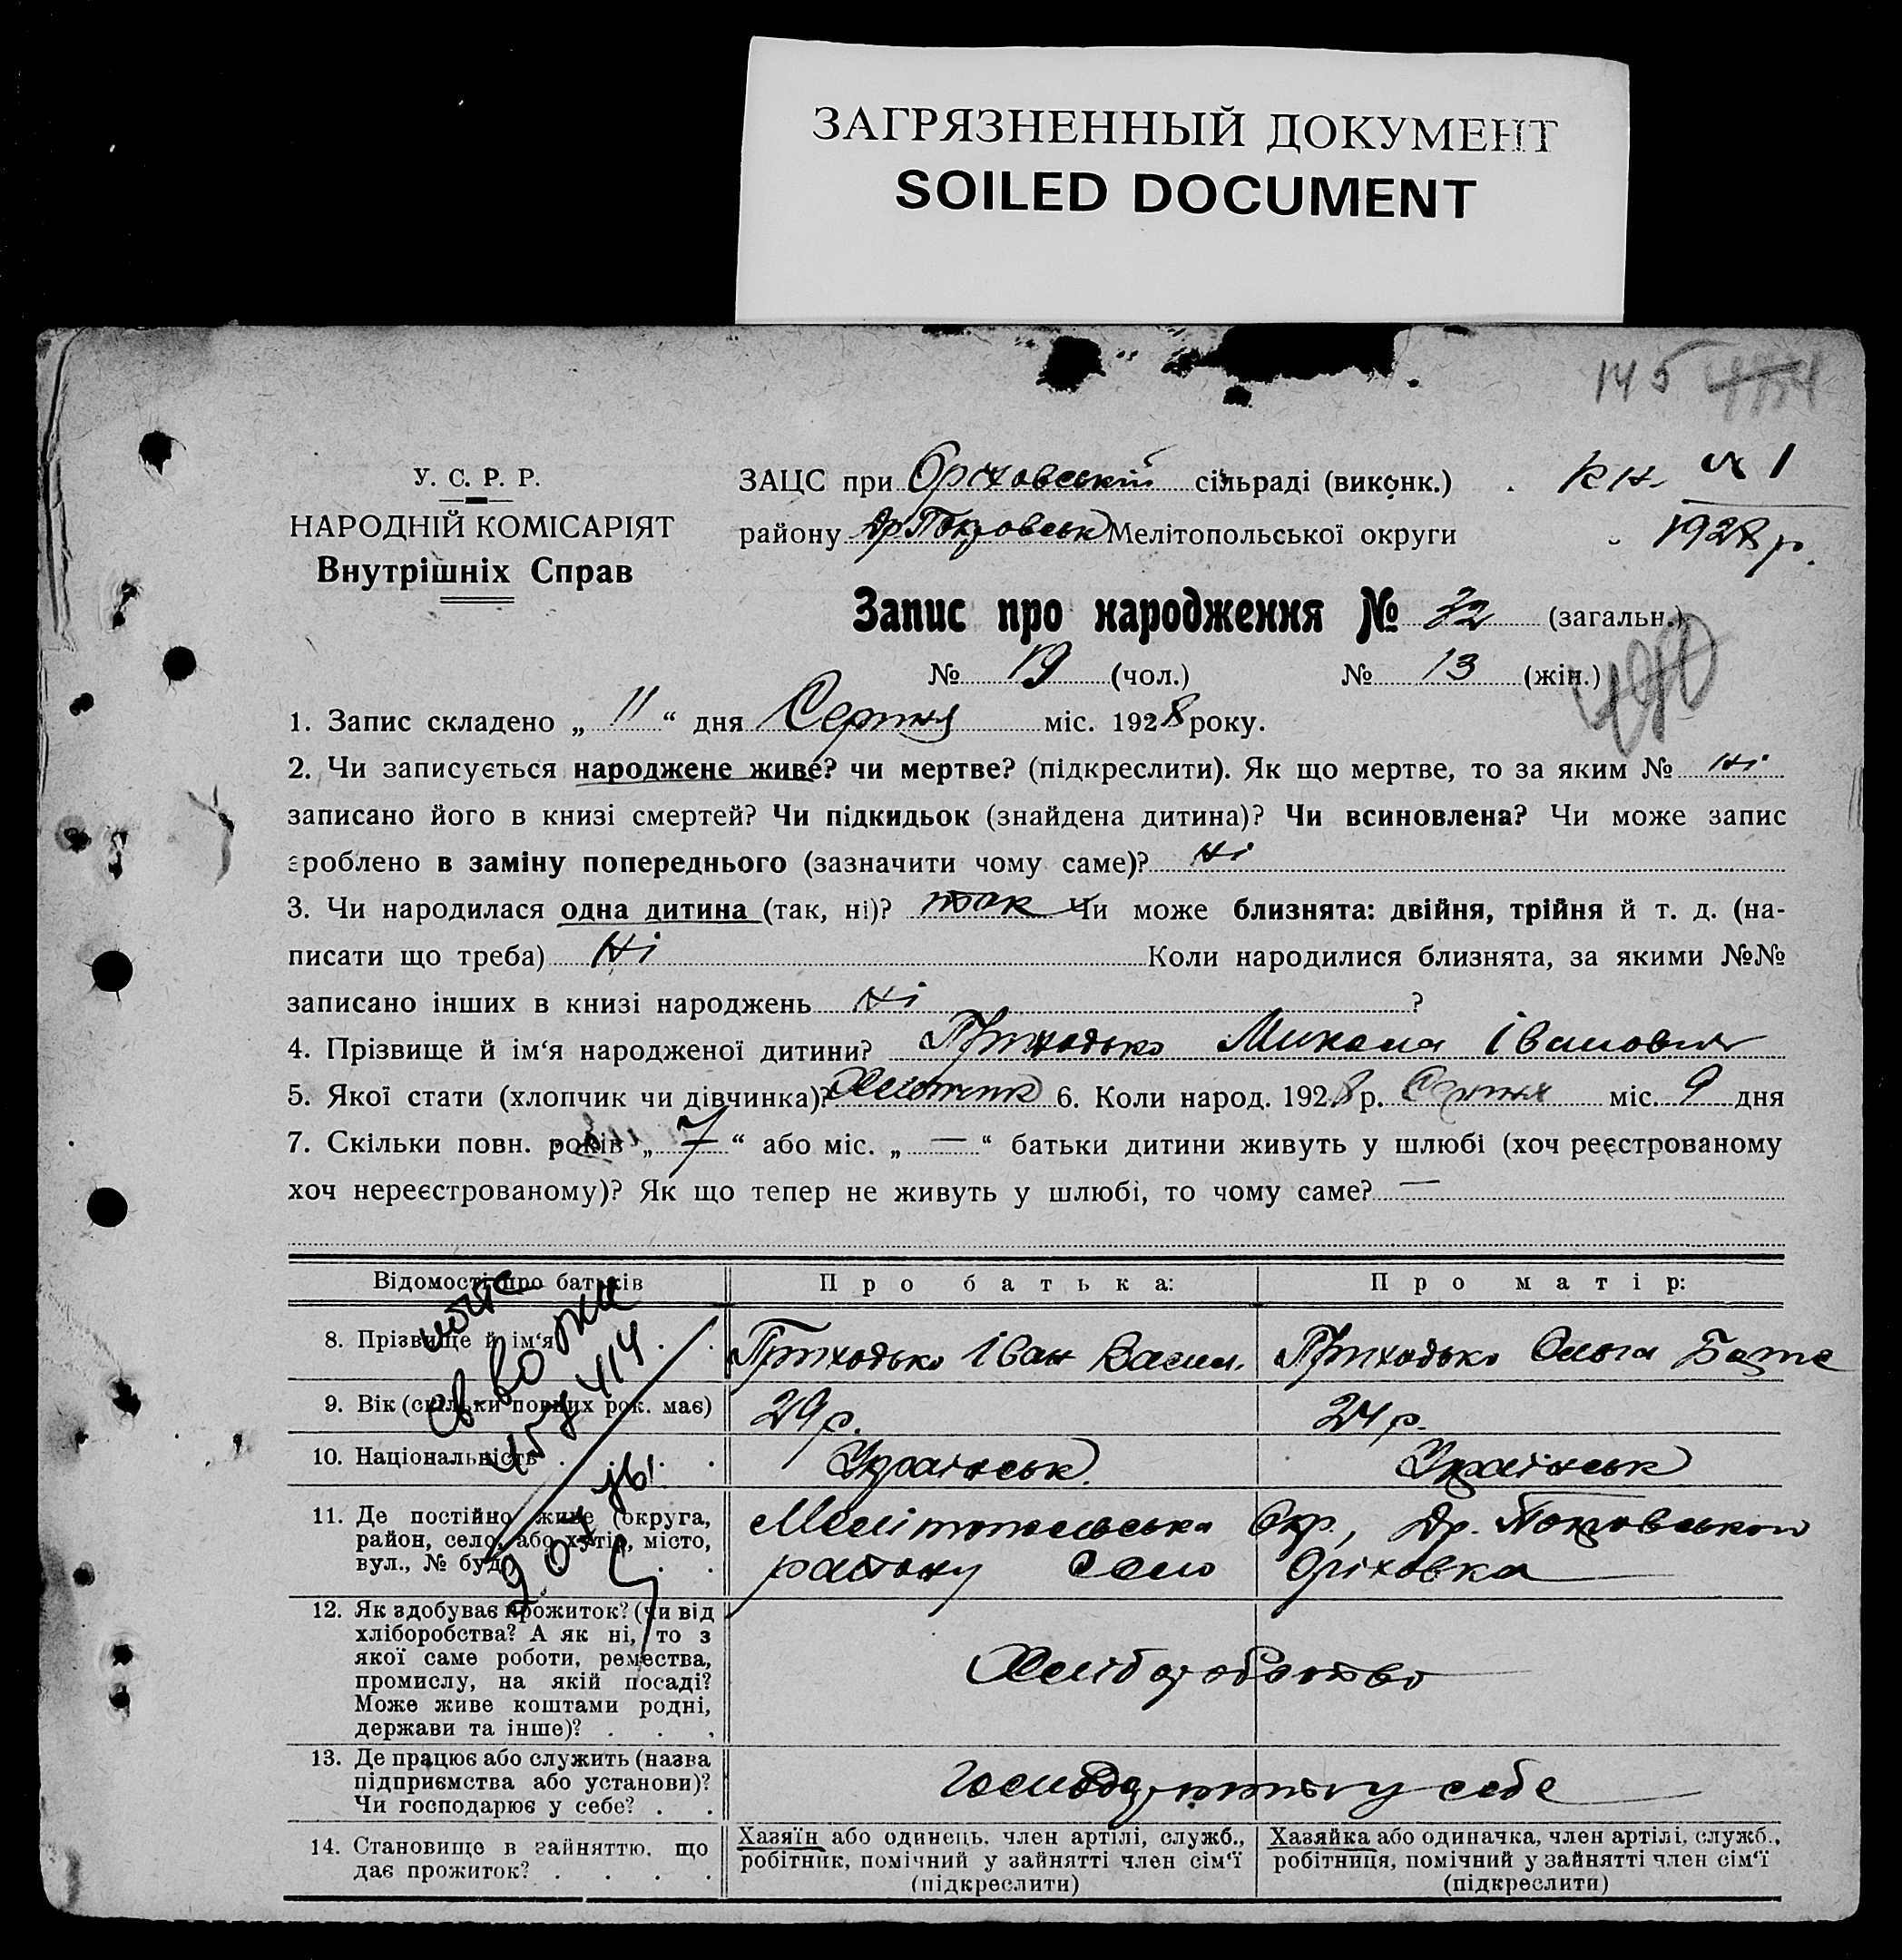 ЗАГРЯЗНЕННЫЙ ДОКУМЕНТ
SOILED DOCUMENT
145
кн. № 1
1928 р.
У. С. Р. Р.
НАРОДНІЙ КОМІСАРІЯТ
Внутрішніх Справ
ЗАЦС при Оріховській сільраді (виконк.)
району Др Покровськ Мелітопольської округи
Запис про народження № 32 (загальн.)
№ 19 (чол.) № 13 (жін.)
490
1. Запис складено „ 11 “ дня Серпня міс. 1928 року.
2. Чи записується народжене живе? чи мертве? (підкреслити). Як що мертве, то за яким № ні
записано його в книзі смертей? Чи підкидьок (знайдена дитина)? Чи всиновлена? Чи може запис
зроблено в заміну попереднього (зазначити чому саме)? ні
3. Чи народилася одна дитина (так, ні)? так Чи може близнята: двійня, трійня й т. д. (на-
писати що треба) ні Коли народилися близнята, за якими №№
записано інших в книзі народжень ні ?
4. Прізвище й ім‘я народженої дитини? Приходько Микола Іванович
5. Якої стати (хлопчик чи дівчинка)? Хлопчик 6. Коли народ. 1928 р. Серпня міс. 9 дня
7. Скільки повн. років „ 7 “ або міс. „ — “ батьки дитини живуть у шлюбі (хоч реєстрованому
хоч нереєстрованому)? Як що тепер не живуть у шлюбі, то чому саме? —
Відомості про батьків Про батька: Про матір:
8. Прізвище й ім‘я . . Приходько Іван Васил. Приходько Ольга
9. Вік (скільки повних рок. має) 29 р. 24 р.
10. Національність . . . Українськ. Українськ
11. Де постійно живе (округа,
район, село, або хутір, місто,
вул., № буд.) . .
Мелітопольська Окр., Др. Покровського
району село Оріховка
12. Як здобуває прожиток? (чи від
хліборобства? А як ні, то з
якої саме роботи, ремества,
промислу, на якій посаді?
Може живе коштами родні,
держави та інше)? . . .
Хліборобство
13. Де працює або служить (назва
підприємства або установи)?
Чи господарює у себе? . .
у себе
14. Становище в зайняттю, що
дає прожиток? . . . .
Хазяїн або одинець, член артілі, служб.,
робітник, помічний у зайнятті член сім‘ї
(підкреслити)
Хазяйка або одиначка, член артілі, служб.,
робітниця, помічний у зайнятті член сім‘ї
(підкреслити)